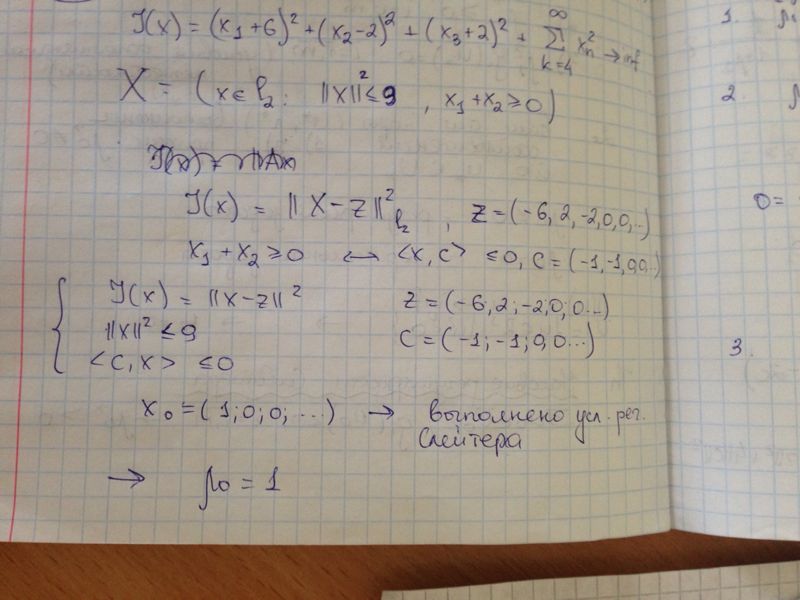 J(x) = (x₁+6)² + (x₂-2)² + (x₃+2)² + ∑_{k=4}^{∞} xₙ² → inf
X = (x ∈ l₂ : ||x||² ≤ 9 , x₁ + x₂ ≥ 0)
J(x) = ||x - z||²_{l₂} , z = (-6, 2, -2, 0, 0, ..)
x₁ + x₂ ≥ 0 ↔ <x, c> ≤ 0, c = (-1, -1, 0, 0, ..)
J(x) = ||x-z||² z = (-6, 2; -2, 0; 0...)
||x||² ≤ 9 c = (-1; -1; 0, 0...)
<c, x> ≤ 0
x₀ = (1; 0; 0; ...) → выполнено усл. рег.
Слейтера
→ μ₀ = 1
1.
2.
0 =
3.